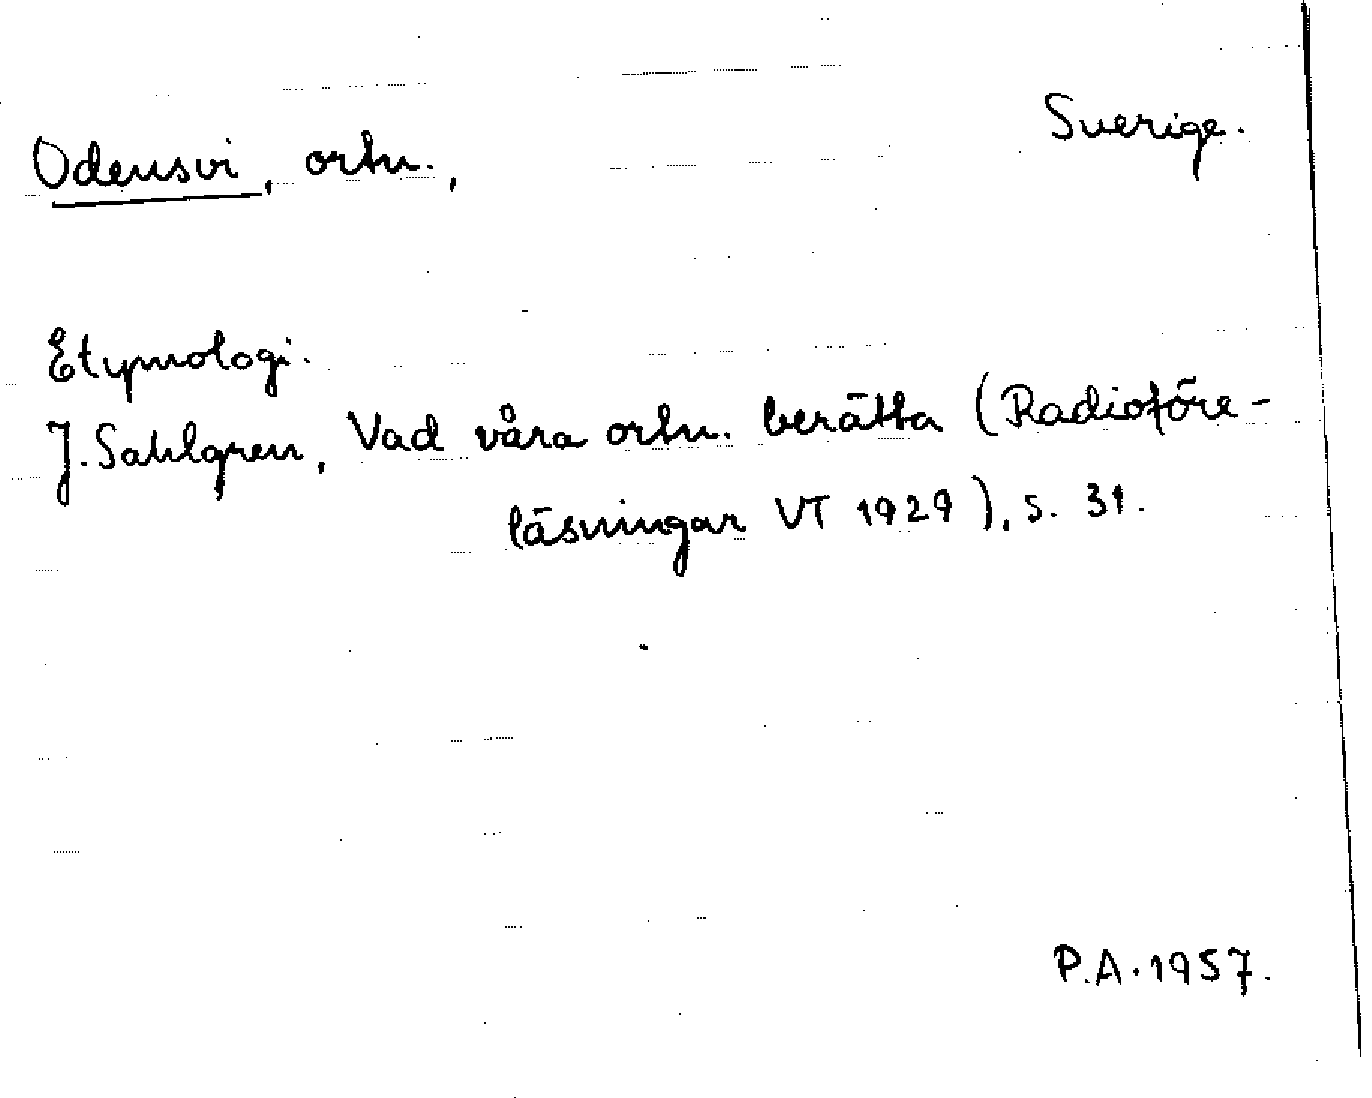 Sverige.
Odensvi, ortn.,
Etymologi.
J. Sahlgren, Vad våra ortn. berätta (Radioföre-
läsningar VT 1929), s. 31.
P.A. 1957.